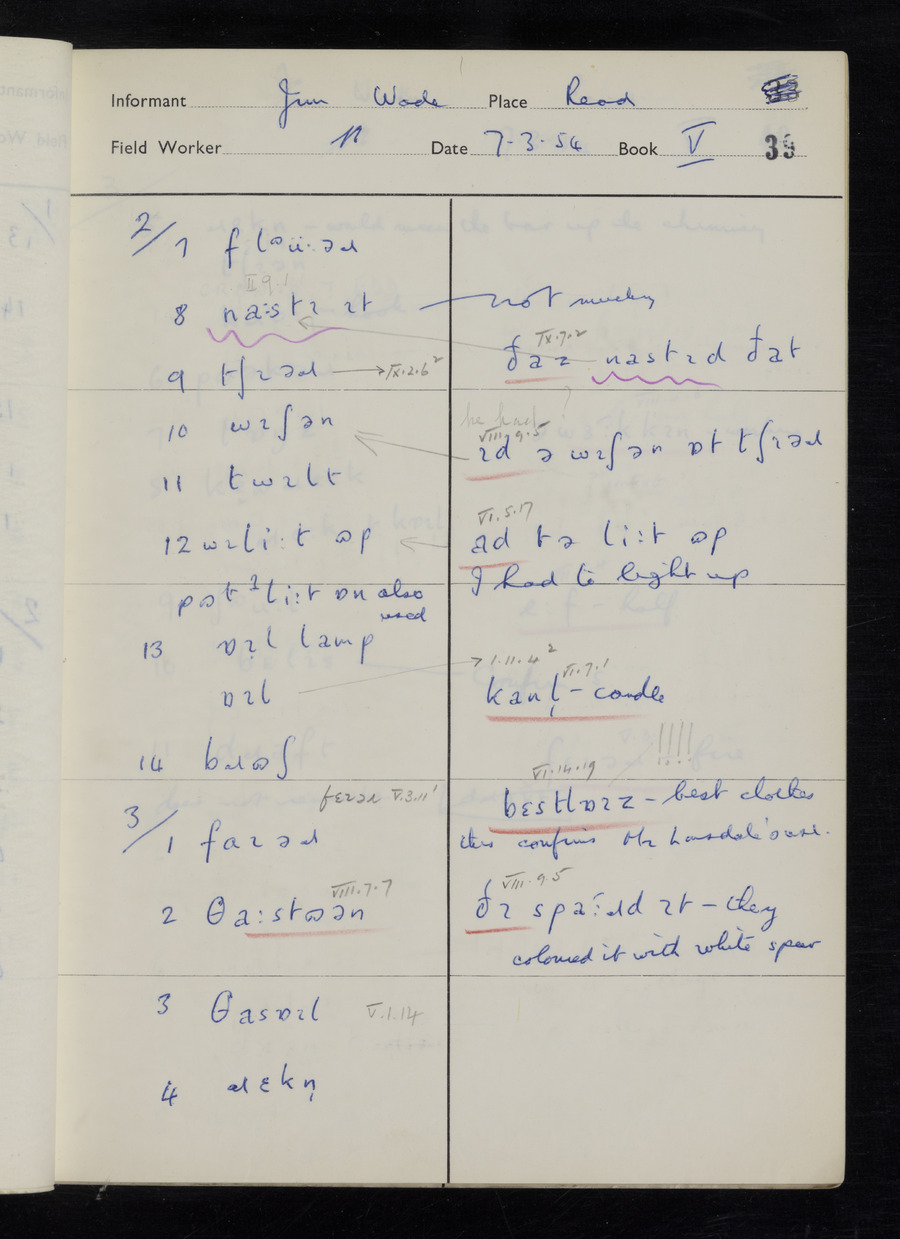 Informant Jim Wade Place Read
Field Worker Date 7-3-54 Book V 39
2/7 flɔüːəɹ
II.9.1
8 naːstɪ ɪt — not mucky
IX.7.2
ðaz nastɪd ðat
9 tʃɪəɹ → IX.2.6²
?
10 wɪʃən
he had
VIII.9.5
ɪd ə wɪʃən ɒt tʃɪəɹ
11 twɪlt
VI.5.17
12 wɪliːt ɷp
ad tə liːt ɷp
I had to light up
pɷt ɪliːt ɒn also
used
13 ɒɪl lamp
ɒɪl
→ I.11.4²
VI.7.1
kanl̩ – candle
14 bɹɷʃ
!!!!
VI.14.19
bɛstlaɪz – best clothes
this confirms Mr Lonsdale's use.
fɛɪəɹ V.3.11¹
3/1 faɪəɹ
VIII.7.7
2 θaːstɷən
VIII.9.5
ðɪ spaːɹd ɪt – they
coloured it with white spar
3 θasɒɪl V.1.14
4 ɹɛkn̩